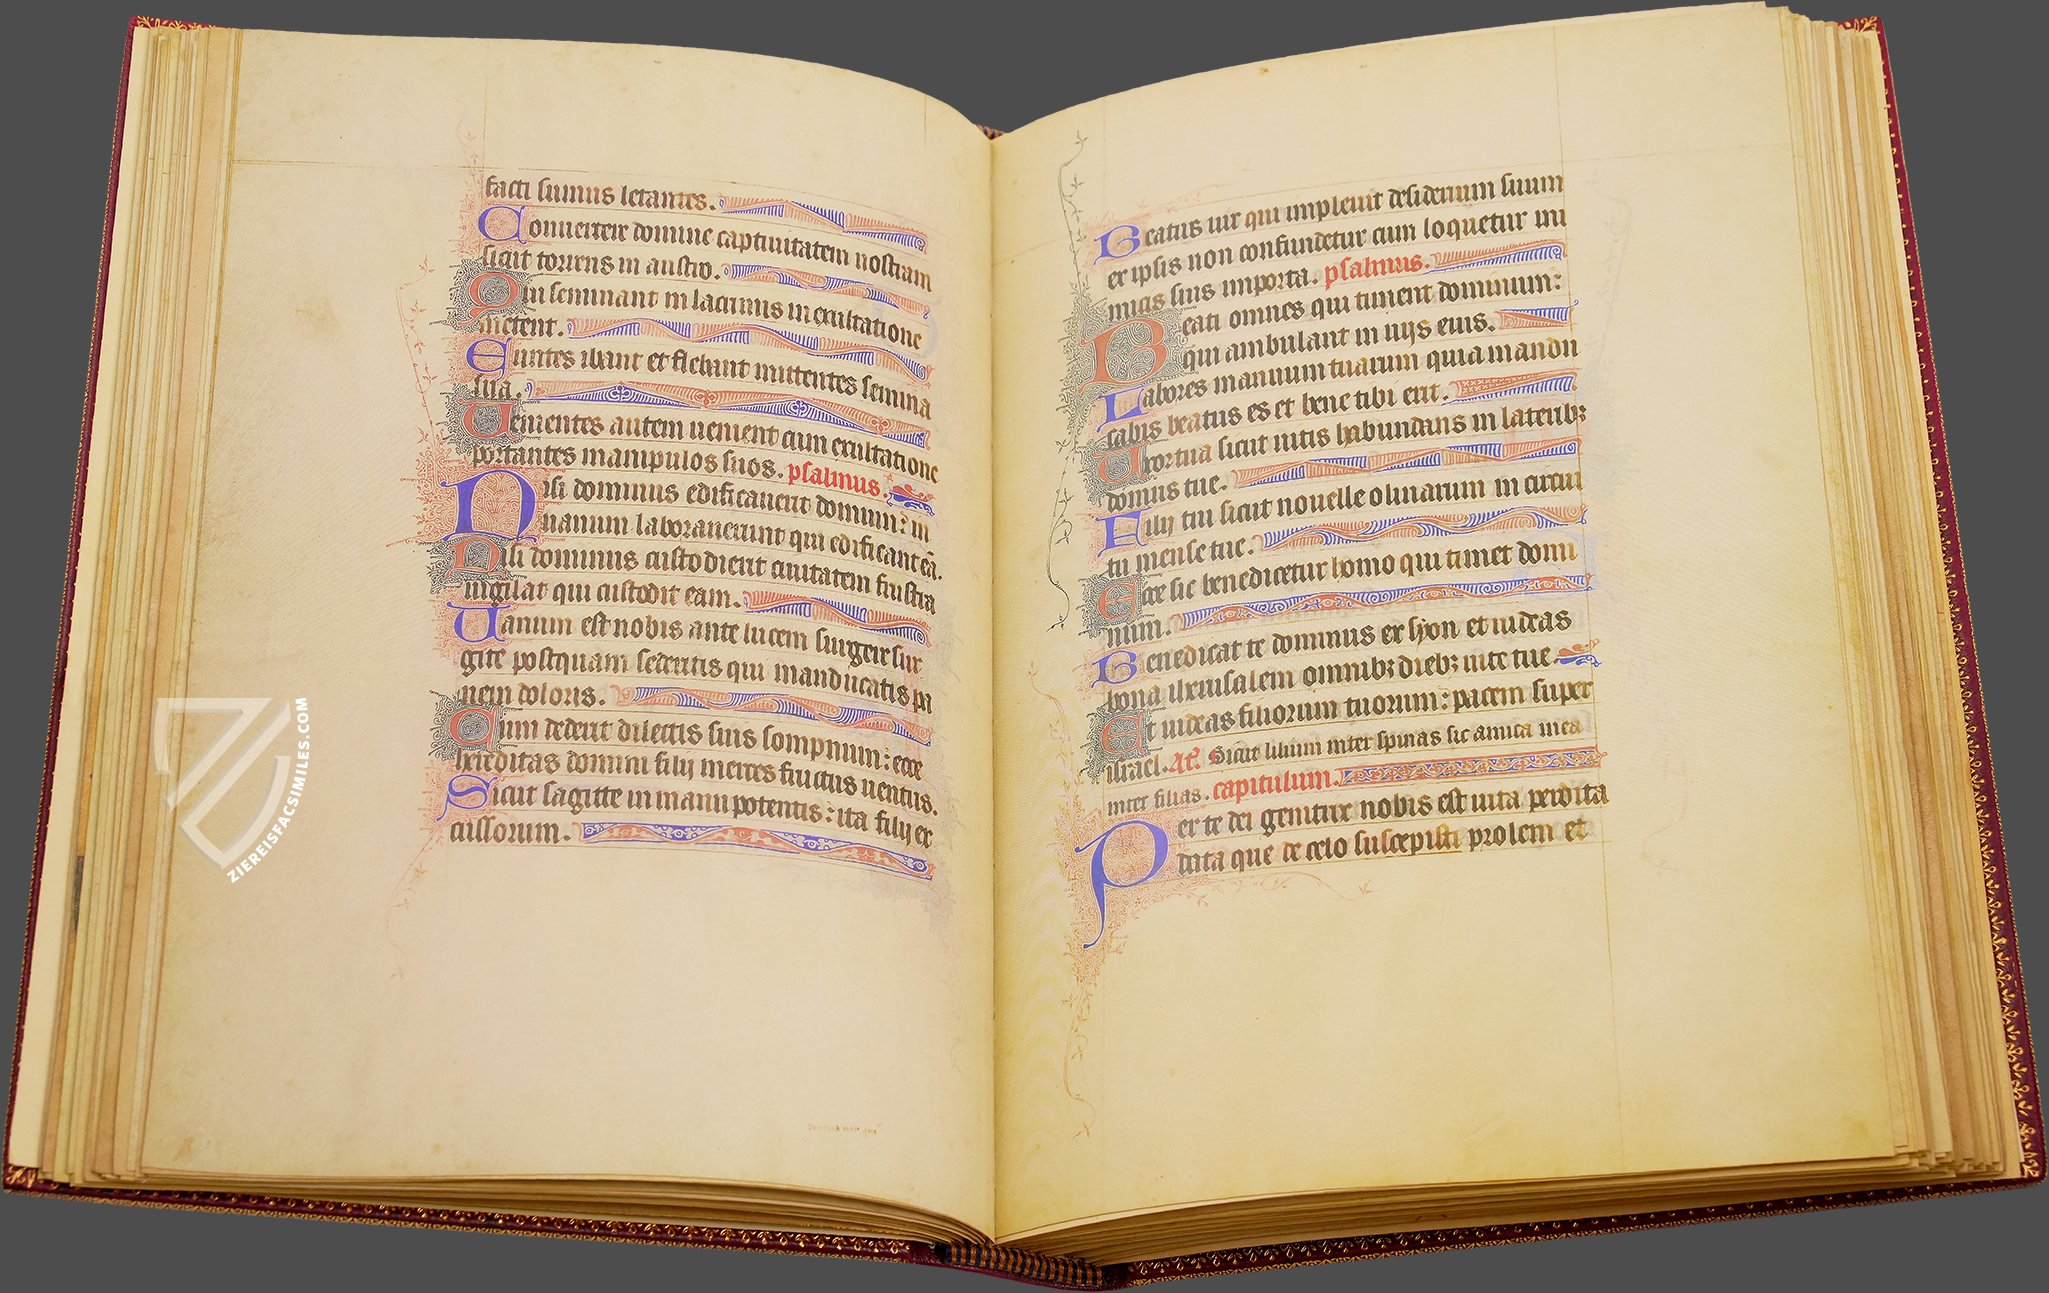 facti sumus letantes.
Conuertere domine captiuitatem nostram
sicut torrens in austro.
Qui seminant in lacrimis in exultatione
metent.
Euntes ibant et flebant mittentes semina
sua.
Uenientes autem uenient cum exultatione
portantes manipulos suos. psalmus.
Nisi dominus edificauerit domum: in
uanum laborauerunt qui edificant eā.
Nisi dominus custodierit ciuitatem frustra
uigilat qui custodit eam.
Uanum est nobis ante lucem surgere sur
gite postquam sederitis qui manducatis pa
nem doloris.
Cum dederit dilectis suis sompnum: ecce
hereditas domini filij merces fructus uentris.
Sicut sagitte in manu potentis: ita filij ex
cussorum.
Beatus uir qui impleuit desiderium suum
ex ipsis non confundetur cum loquetur ini
micis suis in porta. psalmus.
Beati omnes qui timent dominum:
qui ambulant in uijs eius.
Labores manuum tuarum quia mandu
cabis beatus es et bene tibi erit.
Uxor tua sicut uitis habundans in laterib;
domus tue.
Filij tui sicut nouelle oliuarum in circui
tu mense tue.
Ecce sic benedicetur homo qui timet domi
num.
Benedicat te dominus ex syon et uideas
bona iherusalem omnib; dieb; uite tue.
Et uideas filiorum tuorum: pacem super
israel. Sicut lilium inter spinas sic amica mea
inter filias. capitulum.
Per te dei genitrix nobis est uita perdita
data que de celo suscepisti prolem et
ZIEREISFACSIMILES.COM